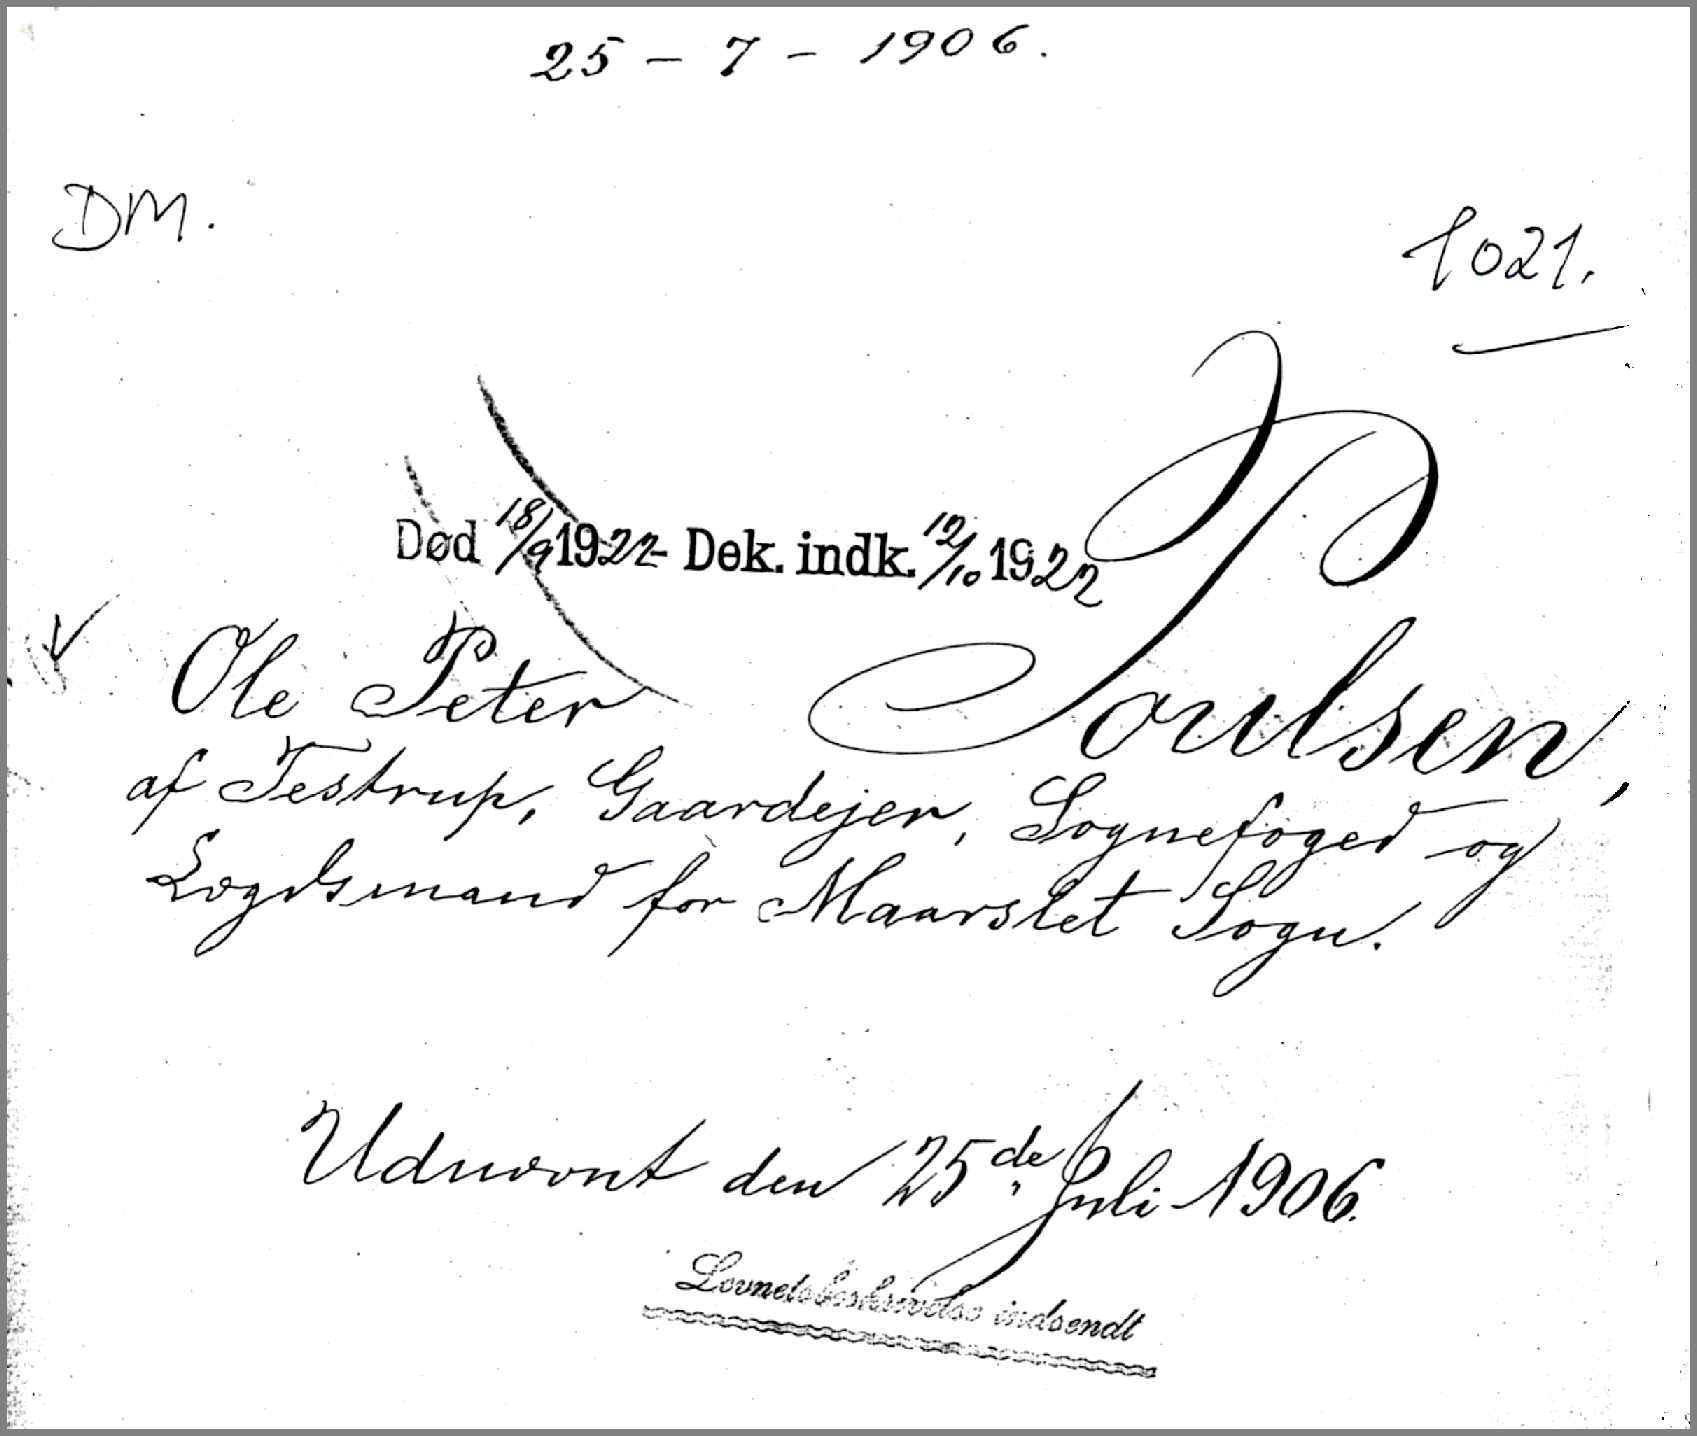 25 - 7 - 1906.
DM.
1021.
Død 18/9 1922 Dek. indk. 12/10 1922
Ole Peter Poulsen,
af Testrup, Gaardejer, Sognefoged og
Lægdsmand for Maarslet Sogn.
Udnævnt den 25de Juli 1906.
Levnetsbeskrivelse indsendt